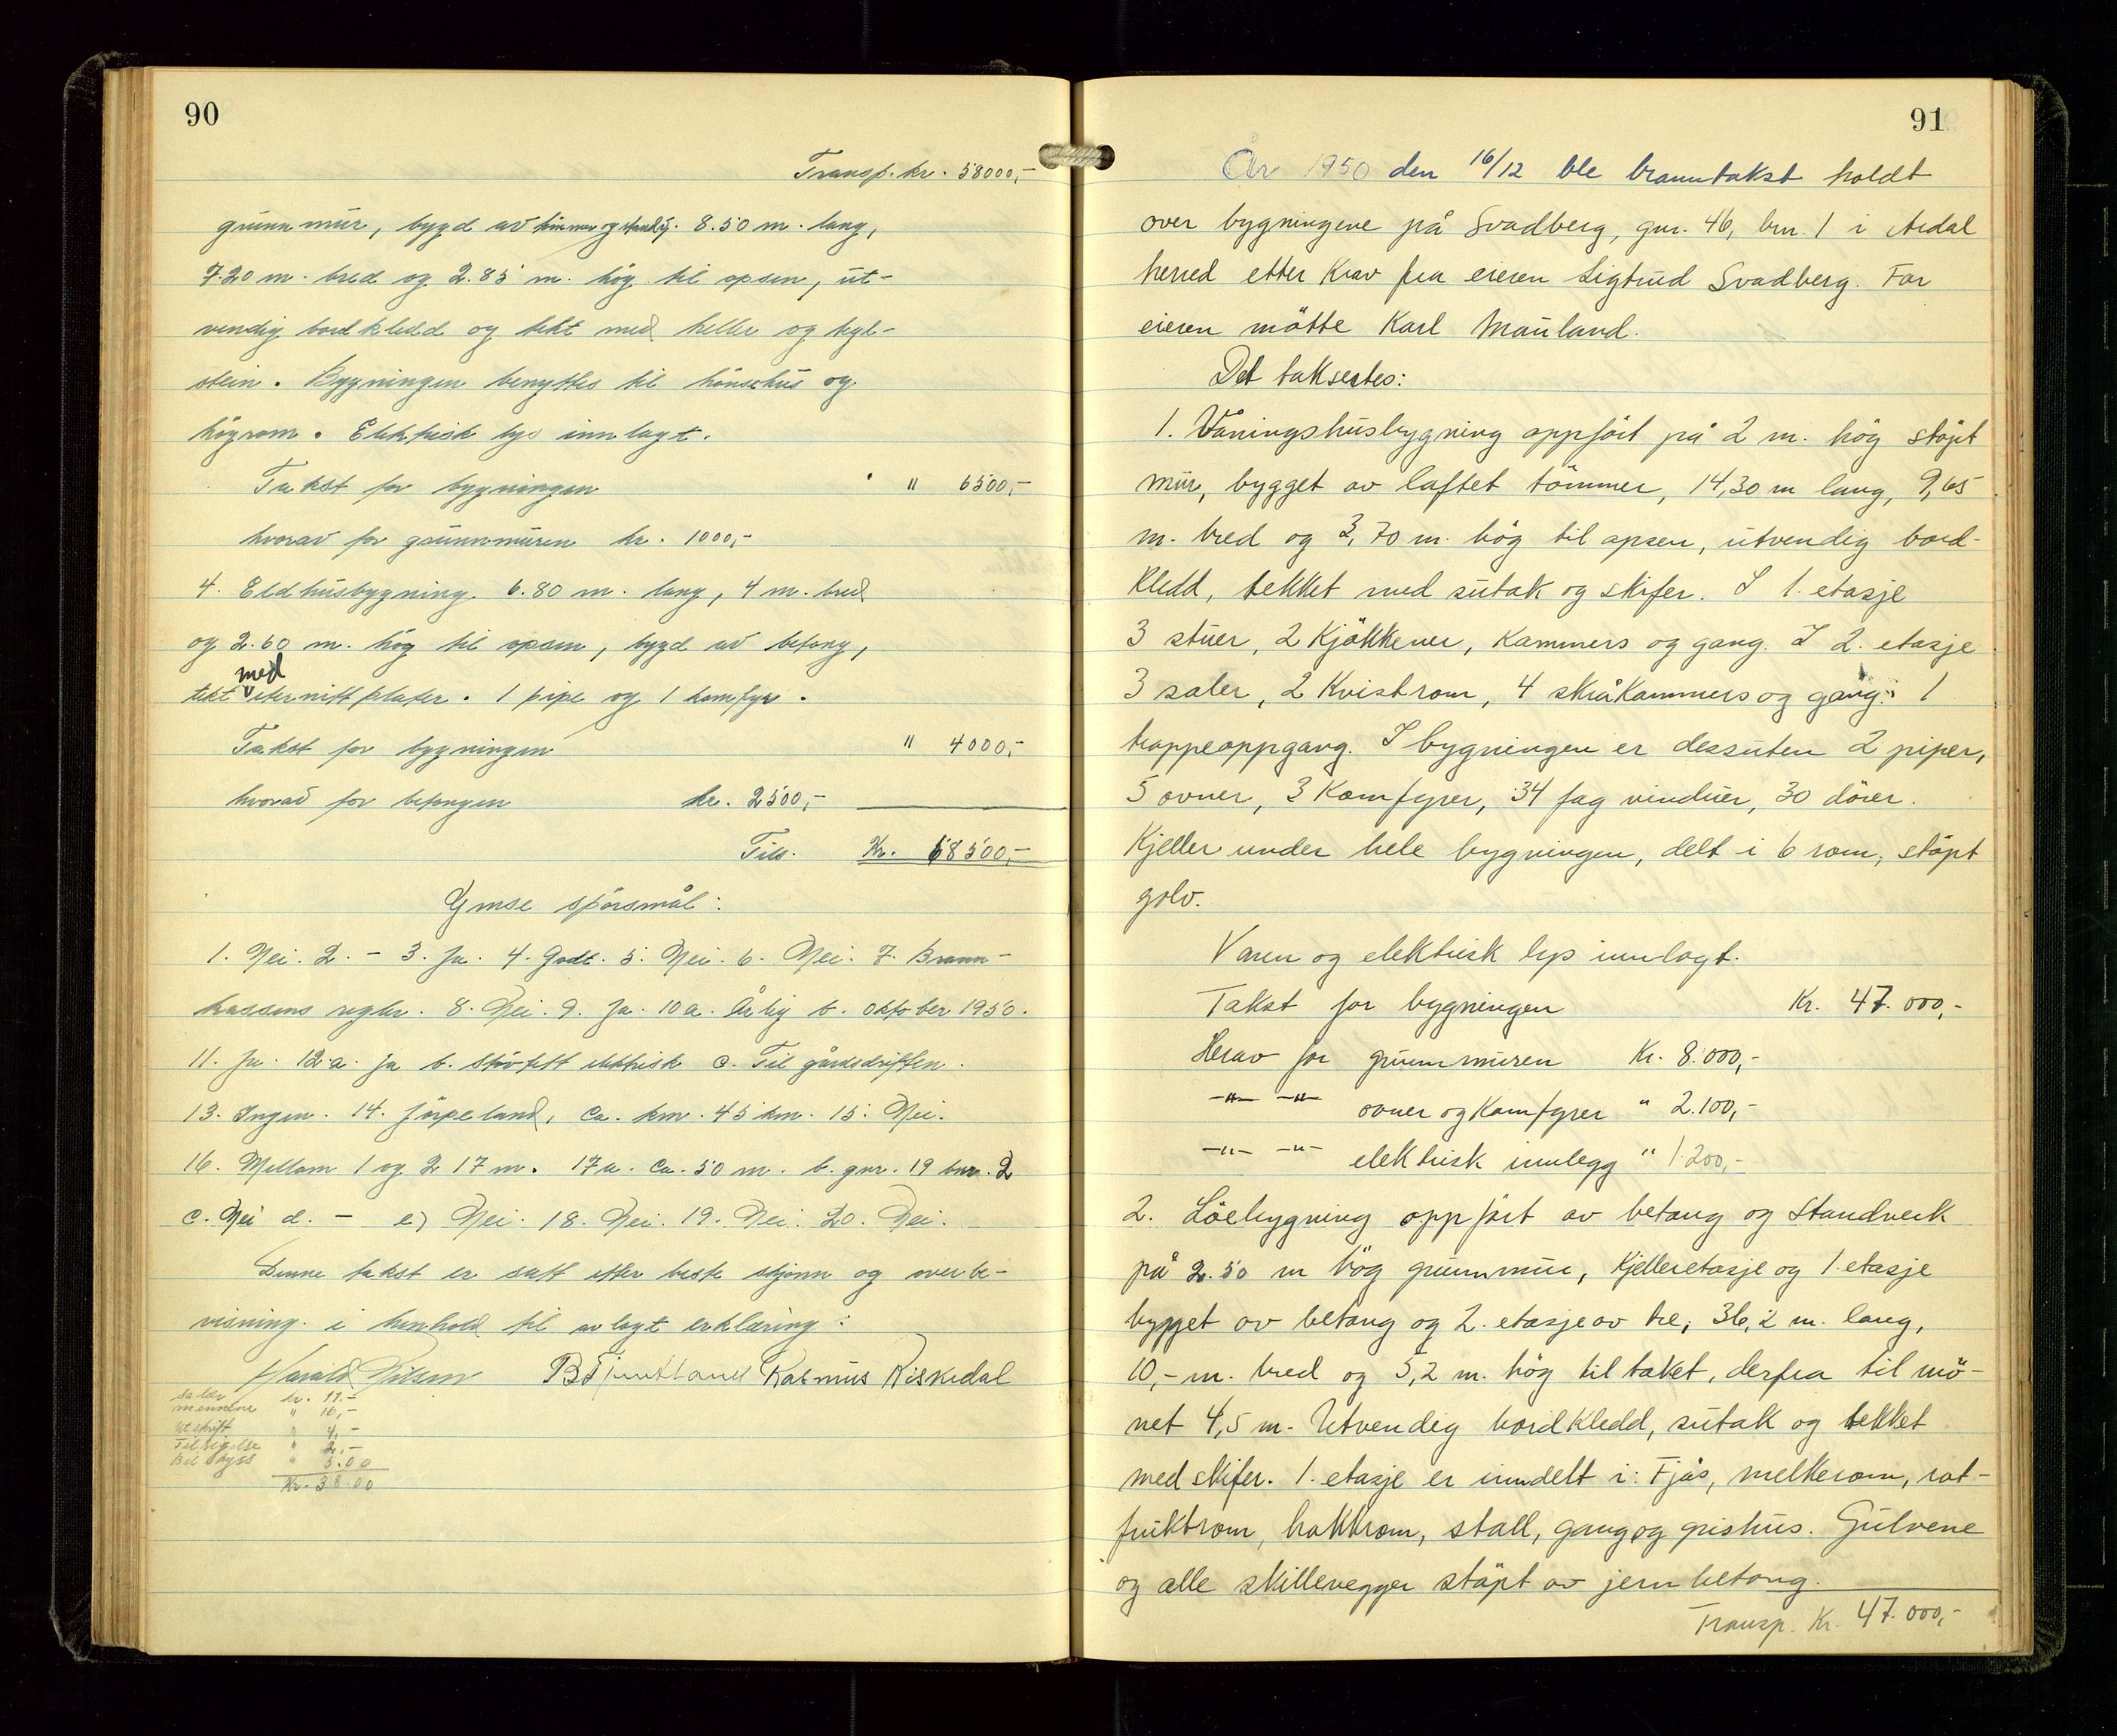 90
Transp. kr. 58000,-
grunnmur, bygd av tömmer og standv. 8.50 m. lang,
7.20 m. bred og 2.85 m. hög til opsen, ut-
vendig bordkledd og tekt med heller og tegl-
stein. Bygningen benyttes til hönsehus og
högrom. Elektrisk lys innlagt.
Takst for bygningen " 6500,-
hvorav for grunnmuren kr. 1000,-
4. Eldhusbygning. 6.80 m. lang, 4 m. bred
og 2.60 m. hög til opsen, bygd av betong,
med
tekt eternittplater. 1 pipe og 1 komfyr.
Takst for bygningen " 4000,-
hvorav for betongen kr. 2500,-
Tils. Kr. 68500,-
Ymse spörsmål:
1. Nei. 2. - 3. Ja. 4. Godt. 5. Nei. 6. Nei. 7. Brann-
kassens regler. 8. Nei. 9. Ja. 10a. Årlig b. oktober 1950.
11. Ja. 12.a. ja b. stövtett elektrisk c. Til gårdsdriften.
13. Ingen. 14. Jörpeland, ca. km. 45 km. 15. Nei.
16. Mellom 1 og 2 17 m. 17a. ca. 50 m. b. gnr. 19 bnr. 2
c. Nei d. - e) Nei. 18. Nei. 19. Nei. 20. Nei.
Denne takst er satt etter beste skjönn og overbe-
visning i henhold til avlagt erklæring:
Harald Nilsen Rasmus Riskedal
kr. 11.-
mennene " 16,-
Utskrift " 4,-
Tilsigelse " 2,-
Bil skyss " 5.00
Kr. 38.00
91
År 1950 den 16/12 ble branntakst holdt
over bygningene på Svadberg, gnr. 46, bnr. 1 i Årdal
herred etter krav fra eieren Sigtrud Svadberg. For
eieren mötte Karl Mauland.
Det taksertes:
1. Våningshusbygning oppfört på 2 m. hög stöpt
mur, bygget av laftet tömmer, 14,30 m lang, 9,65
m. bred og 3,70 m. hög til opsen, utvendig bord-
kledd, tekket med sutak og skifer. I 1. etasje
3 stuer, 2 kjökkener, kammers og gang. I 2. etasje
3 saler, 2 kvistrom, 4 skråkammers og gang. 1
trappeoppgang. I bygningen er dessuten 2 piper,
5 ovner, 3 komfyrer, 34 fag vinduer, 30 dörer.
Kjeller under hele bygningen, delt i 6 rom, stöpt
golv.
Vann og elektrisk lys innlagt.
Takst for bygningen Kr. 47.000,-
Herav for grunnmuren Kr. 8.000,-
-"- -"- ovner og komfyrer " 2.100,-
-"- -"- elektrisk innlegg " 1.200,-
2. Löebygning oppfört av betong og standverk
på 2.50 m hög grunnmur, kjelleretasje og 1. etasje
bygget av betong og 2. etasje av tre, 36,2 m. lang,
10,- m. bred og 5,2 m. hög til taket, derfra til mö-
net 4,5 m. Utvendig bordkledd, sutak og tekket
med skifer. 1. etasje er inndelt i: Fjös, melkerom, rot-
fruktrom, hakkrom, stall, gang og grishus. Gulvene
og alle skillevegger stöpt av jernbetong.
Transp. Kr. 47.000,-